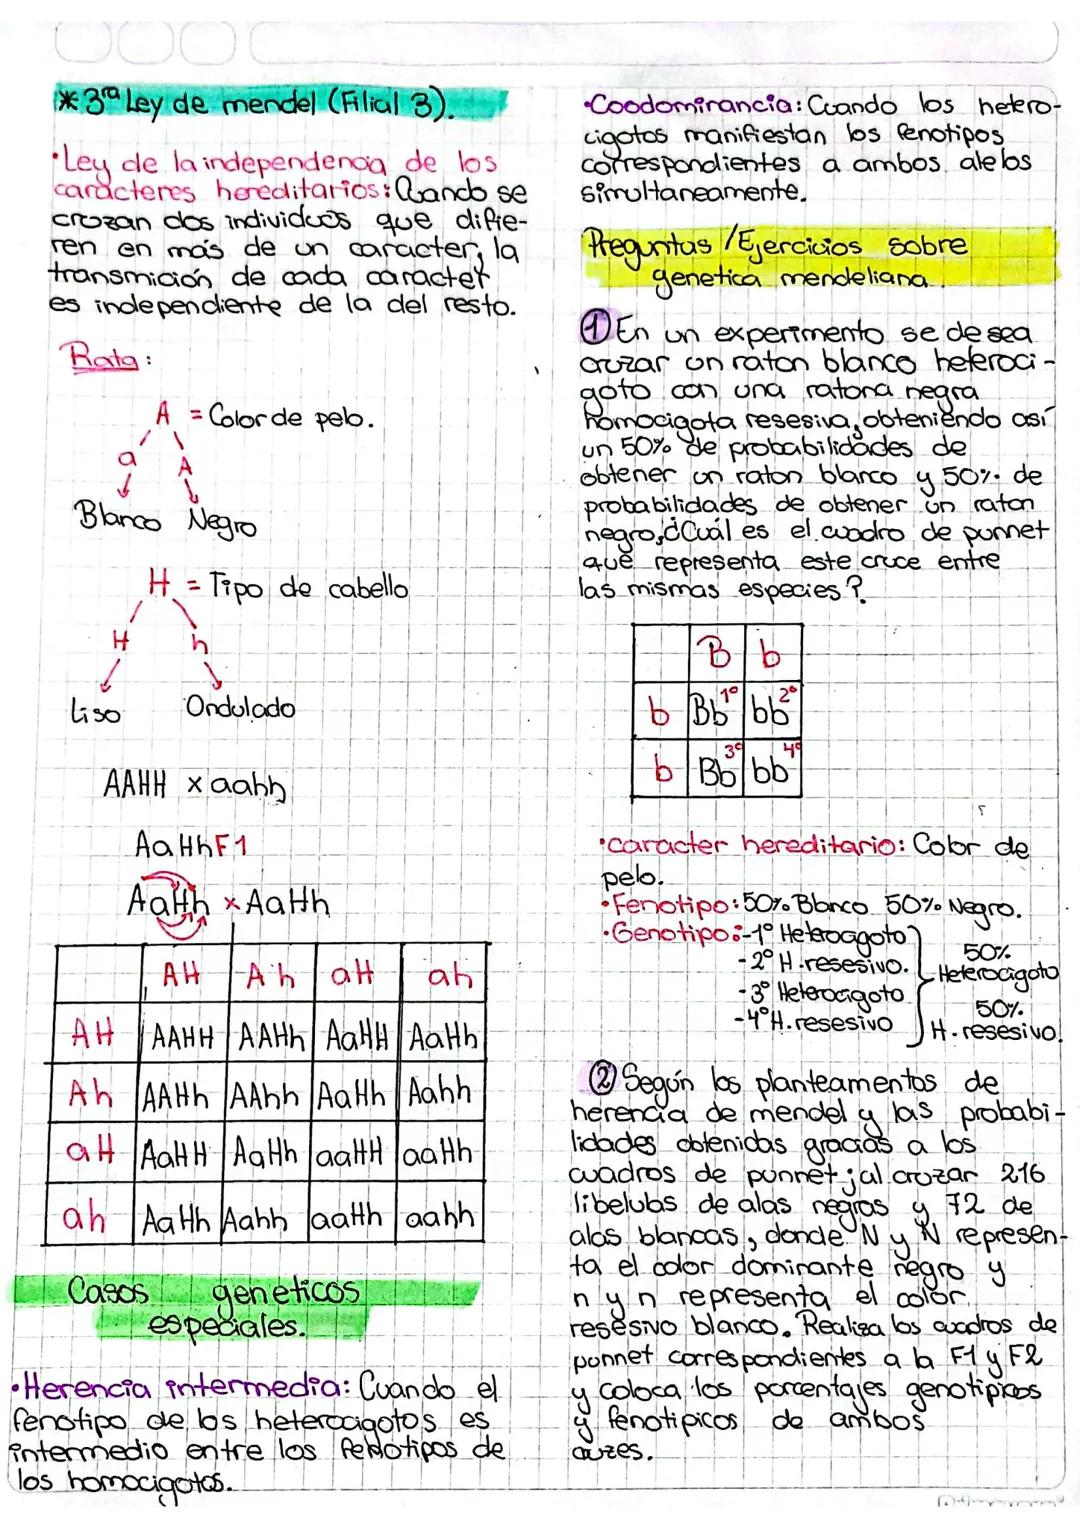 *3ra Ley de mendel (Filial 3).
•Ley de la independencia de los
carácteres hereditarios: Cuando se
cruzan dos individuos que difie-
ren en más de un caracter, la
transmición de cada carácter
es independiente de la del resto.
Rata:
A = Color de pelo.
a A
Blanco Negro
H = Tipo de cabello
H h
Liso Ondulado
AAHH x aahh
AaHh F1
AaHh x AaHh
AH Ah aH ah
AH AAHH AAHh AaHH AaHh
Ah AAHh AAhh AaHh Aahh
aH AaHH AaHh aaHH aaHh
ah AaHh Aahh aaHh aahh
Casos geneticos
especiales.
•Herencia intermedia: Cuando el
fenotipo de los heterocigotos es
intermedio entre los fenotipos de
los homocigotos.
•Coodominancia: Cuando los hetero-
cigotos manifiestan los fenotipos
correspondientes a ambos alelos
simultaneamente.
Preguntas /Ejercicios sobre
genetica mendeliana.
① En un experimento se desea
cruzar un raton blanco heteroci-
goto con una ratona negra
homocigota resesiva, obteniendo así
un 50% de probabilidades de
obtener un raton blanco y 50% de
probabilidades de obtener un raton
negro, ¿Cuál es el cuadro de punnet
que representa este cruce entre
las mismas especies?
B b
b Bb 1º bb 2º
b Bb 3º bb 4º
•caracter hereditario: Color de
pelo.
•Fenotipo: 50% Blanco 50% Negro.
•Genotipo: -1º Heterocigoto
-2º H. resesivo.
-3º Heterocigoto
-4º H. resesivo
50%
Heterocigoto
50%
H. resesivo.
② Según los planteamientos de
herencia de mendel y las probabi-
lidades obtenidas gracias a los
cuadros de punnet; al cruzar 216
libelulas de alas negras y 72 de
alas blancas, donde N y N represen-
ta el color dominante negro y
n y n representa el color
resesivo blanco. Realiza los cuadros de
punnet correspondientes a la F1 y F2
y coloca los porcentajes genotipicos
y fenotipicos de ambos
cruzes.